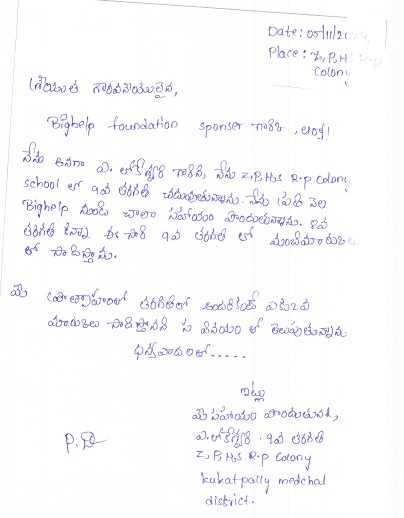 Date: 05/11/2024,
Place: Z,P,H,S R-p
Colony
శ్రీయుత గౌరవనీయులైన,
Bighelp foundation sponser గారికి,
నేను అనగా ఎ. లోకేశ్వరి గారిని, నేను Z,P,H,s R.p Colony
school లో 9వ తరగతి చదువుతున్నాను. నేను ప్రతి నెల
Bighelp నుండి చాలా సహాయం పొందుతున్నాను. 8వ
తరగతి కన్నా ఈ సారి 9వ తరగతి లో మంచిమారుకులు
తో సాదిస్తాను.
మీ ప్రోత్సాహంతో తరగతిలో అందరికంటే ఎకువ
మారుకులు సాదిస్తానని స వినయం తో తెలుపుతున్నాను
ధన్యవాదాలతో.....
ఇట్లు
మీ సహాయం పొందుతునది,
ఎ.లోకేశ్వరి. 9వ తరగతి
Z,P,H,s R.p Colony
kukatpally medchal
district.